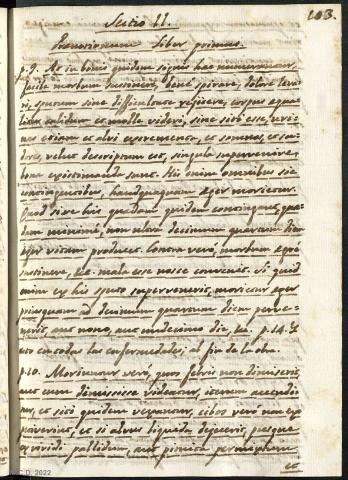 103.
Sectio II.
Prænotionum Liber primus.
p. 9. At in bonis quidem signis hæc numerantur,
facile morbum sustinere, bene spirare, dolore leva-
ri, sputum sine difficultate rejicere, corpus equa-
liter calidum et molle videri, sine siti esse, uri-
nas etiam et alvi excrementa, et somnos, et su-
dores, velut descriptum est, singula supervenire,
bona existimanda sunt. His enim omnibus sic
contingentibus, haudquaquam æger morietur.
Quod si ex his quædam quidem contingant, quæ-
dam minime, non ultra decimum quartum diem
æger vitam producet. Contra vero, morbum egre
sustinere, &c. mala esse nosse convenit. Si quid
enim ex his sputo supervenerit, morietur æger
priusquam ad decimum quartum diem perve-
nerit, aut nono, aut undecimo die, &c. p. 14.
en todas las enfermedades; al fin de la
p. 10. Morinuntur vero, quos febris non dimiserit,
aut cum dimisisse videatur, iterum accendi-
tur, et siti quidem vexantur, cibos vero non ex-
petiverint, et si alvus liquida dejecerit, pusque
ex viridi pallidum, aut pituita permixtum
et
C.D. 2022